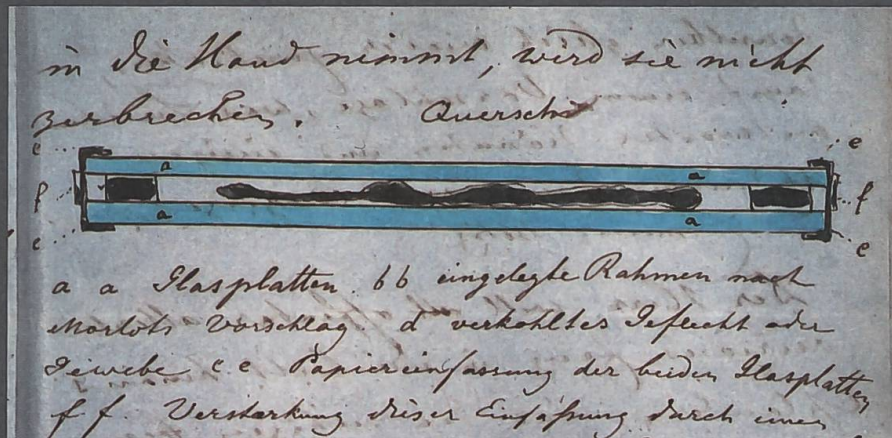 in die Hand nimmt, wird sie nicht
zerbrechen. Querschn
e e
a a
f f
a a
e e
a a Glasplatten. bb eingelegte Rahmen nach
Morlots Vorschlag. d verkohltes Geflecht oder
Gewebe e e Papiereinfassung der beiden Glasplatten
f f Verstärkung dieser Einfaßung durch einen